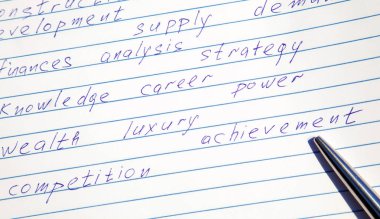 onstruc
evelopment supply dema
finances analysis strategy
Knowledge career power
wealth luxury achievement
competition